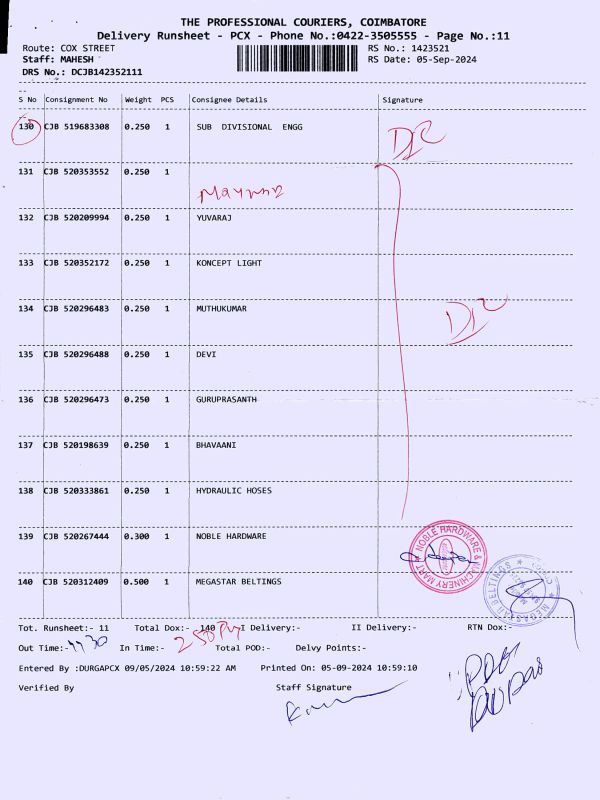 THE PROFESSIONAL COURIERS, COIMBATORE
Delivery Runsheet - PCX - Phone No.:0422-3505555 - Page No.:11
Route: COX STREET RS No.: 1423521
Staff: MAHESH RS Date: 05-Sep-2024
DRS No.: DCJB142352111
S No Consignment No Weight PCS Consignee Details Signature
130 CJB 519683308 0.250 1 SUB DIVISIONAL ENGG
131 CJB 520353552 0.250 1
132 CJB 520209994 0.250 1 YUVARAJ
133 CJB 520352172 0.250 1 KONCEPT LIGHT
134 CJB 520296483 0.250 1 MUTHUKUMAR
135 CJB 520296488 0.250 1 DEVI
136 CJB 520296473 0.250 1 GURUPRASANTH
137 CJB 520198639 0.250 1 BHAVAANI
138 CJB 520333861 0.250 1 HYDRAULIC HOSES
139 CJB 520267444 0.300 1 NOBLE HARDWARE
NOBLE HARDWARE & MACHINERY MART
140 CJB 520312409 0.500 1 MEGASTAR BELTINGS
MEGASTAR BELTINGS
Tot. Runsheet:- 11 Total Dox:- 140 I Delivery:- II Delivery:- RTN Dox:-
Out Time:- 1130 In Time:- Total POD:- Delvy Points:-
Entered By :DURGAPCX 09/05/2024 10:59:22 AM Printed On: 05-09-2024 10:59:10
Verified By Staff Signature